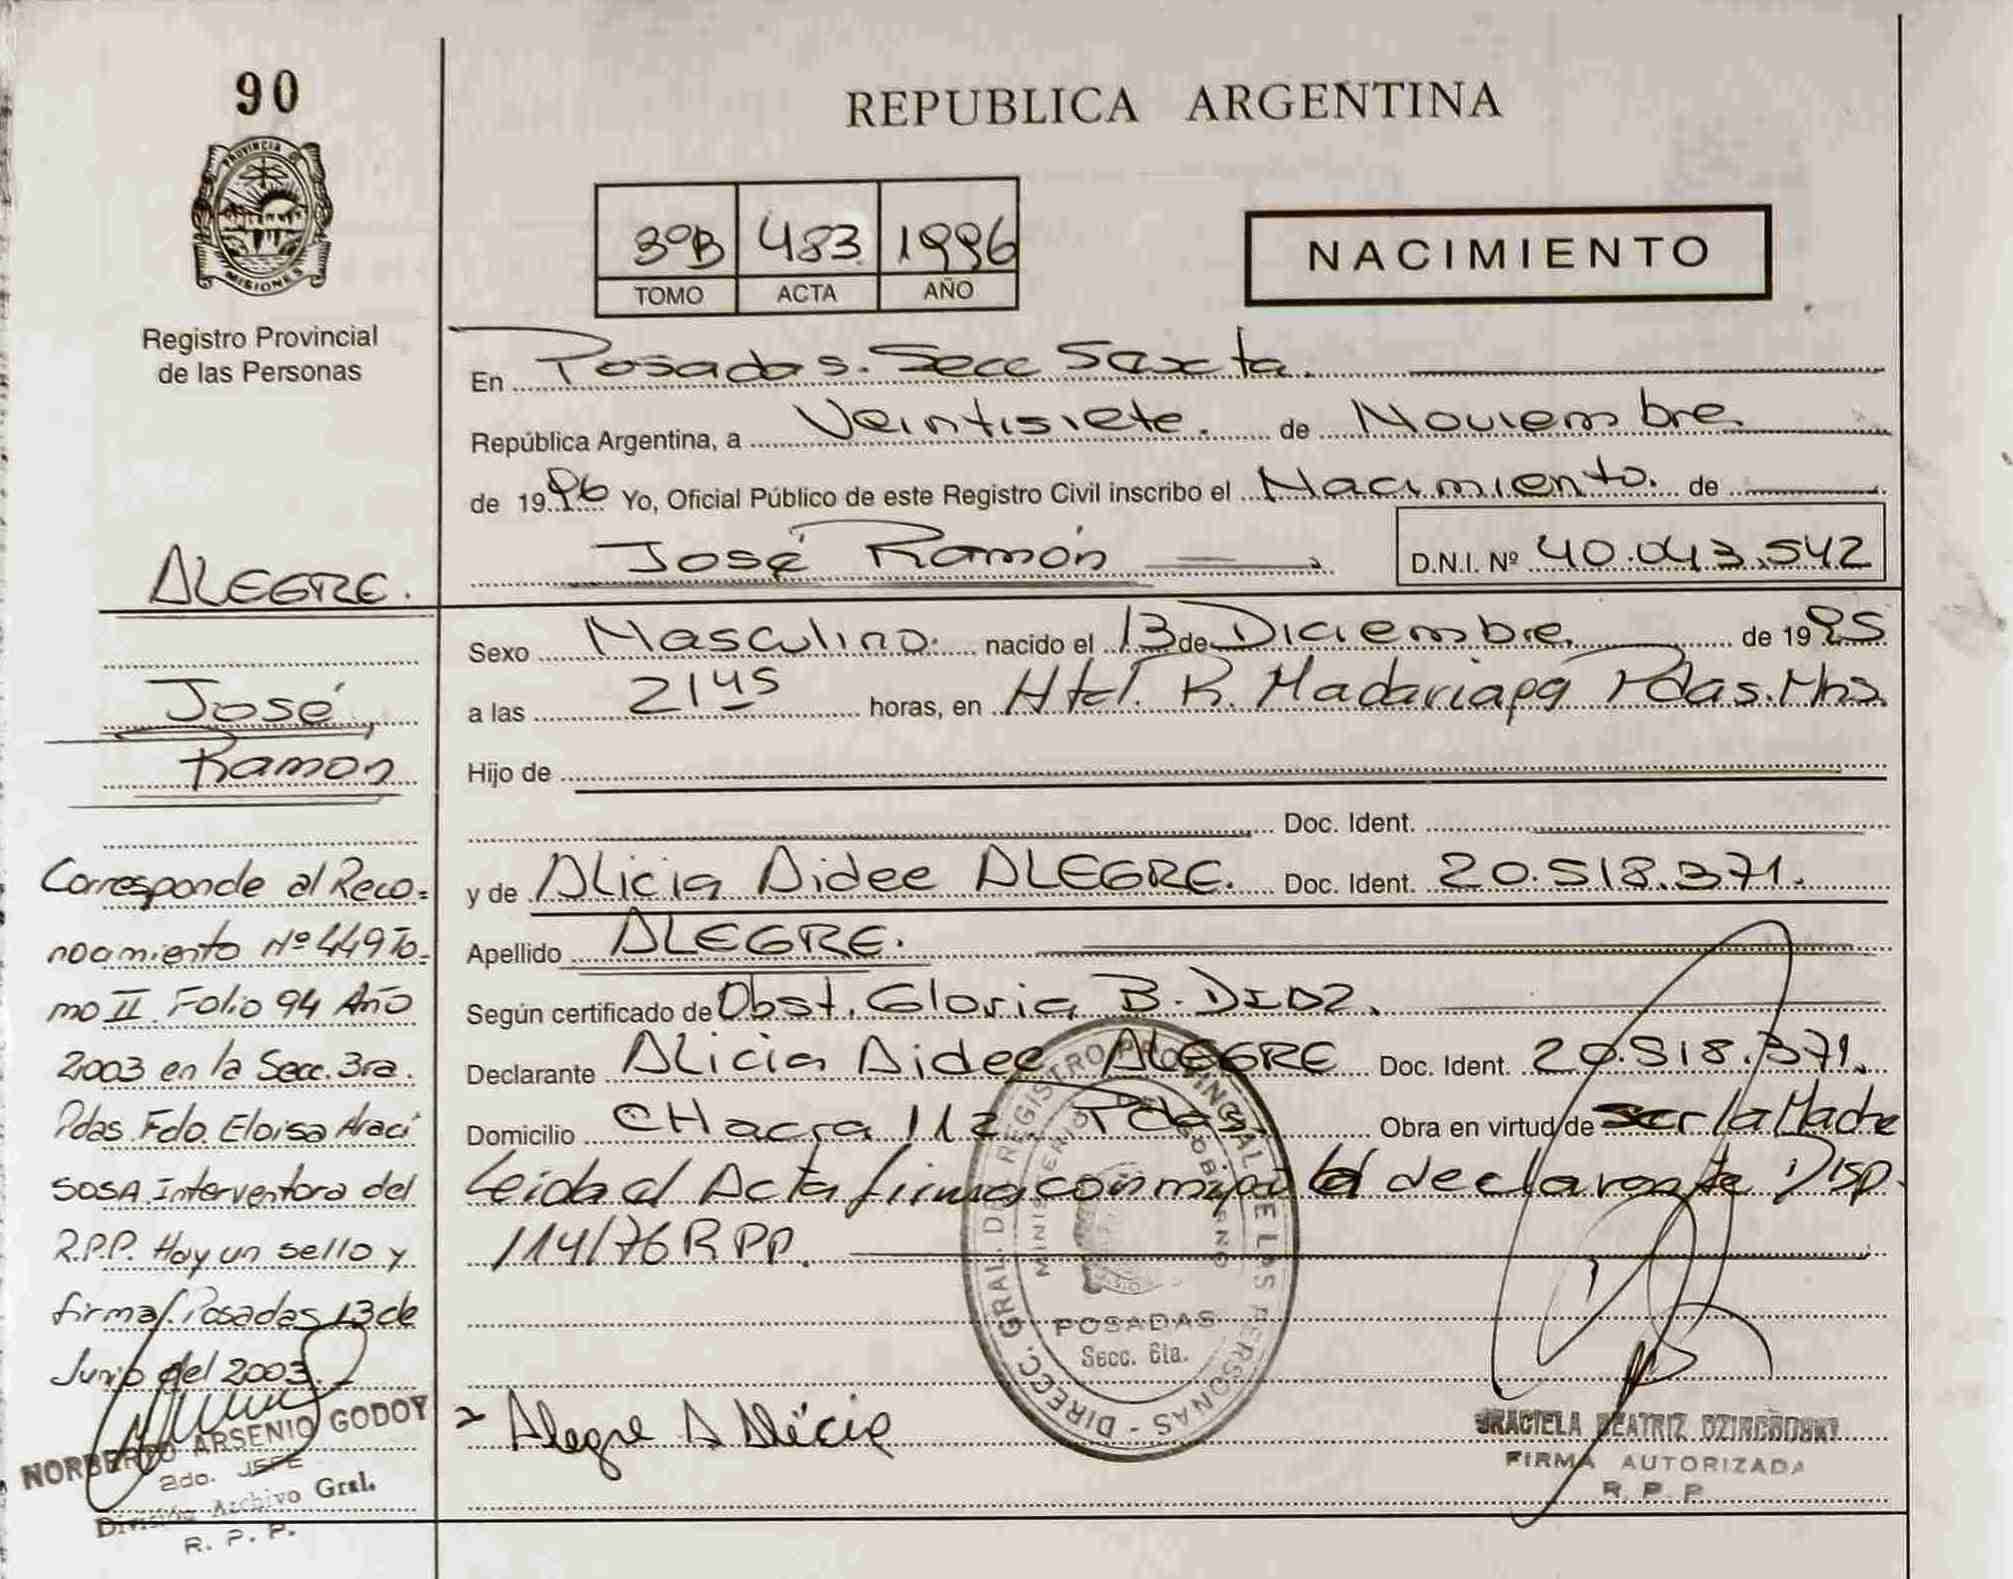 90
PROVINCIA DE
MISIONES
Registro Provincial
de las Personas
ALEGRE.
José
Ramón
Corresponde al Reco-
nocimiento Nº 449 To-
mo II. Folio 94 Año
2003 en la Secc. 3ra.
Pdas. Fdo. Eloisa Araci
SOSA Interventora del
R.P.P. Hay un sello y
firma/. Posadas 13 de
Junio del 2003.
NORBERTO ARSENIO GODOY
2do. JEFE
División Archivo Gral.
R. P. P.
REPUBLICA ARGENTINA
3ºB 483 1996
TOMO ACTA AÑO
NACIMIENTO
En Posadas. Secc Sexta.
República Argentina, a Veintisiete. de Noviembre
de 1996 Yo, Oficial Público de este Registro Civil inscribo el Nacimiento. de
José Ramón D.N.I. Nº 40.043.542
Sexo Masculino. nacido el 13 de Diciembre de 1995
a las 21 45 horas, en Htal. R. Madariaga Pdas. Mns.
Hijo de
Doc. Ident.
y de Alicia Aidee ALEGRE. Doc. Ident. 20.518.371.
Apellido ALEGRE.
Según certificado de Obst. Gloria B. DIAZ.
Declarante Alicia Aidee ALEGRE Doc. Ident. 20.518.371.
Domicilio CHacra 112 Pdas. Obra en virtud de ser la Madre
Leida el Acta firma conmigo la declarante Disp.
114/76 R.P.P.
DIRECC. GRAL. DE REGISTRO PROVINCIAL DE LAS PERSONAS
MINISTERIO DE GOBIERNO
POSADAS
Secc. 6ta.
Alegre A Alicia
GRACIELA BEATRIZ
FIRMA AUTORIZADA
R. P. P.